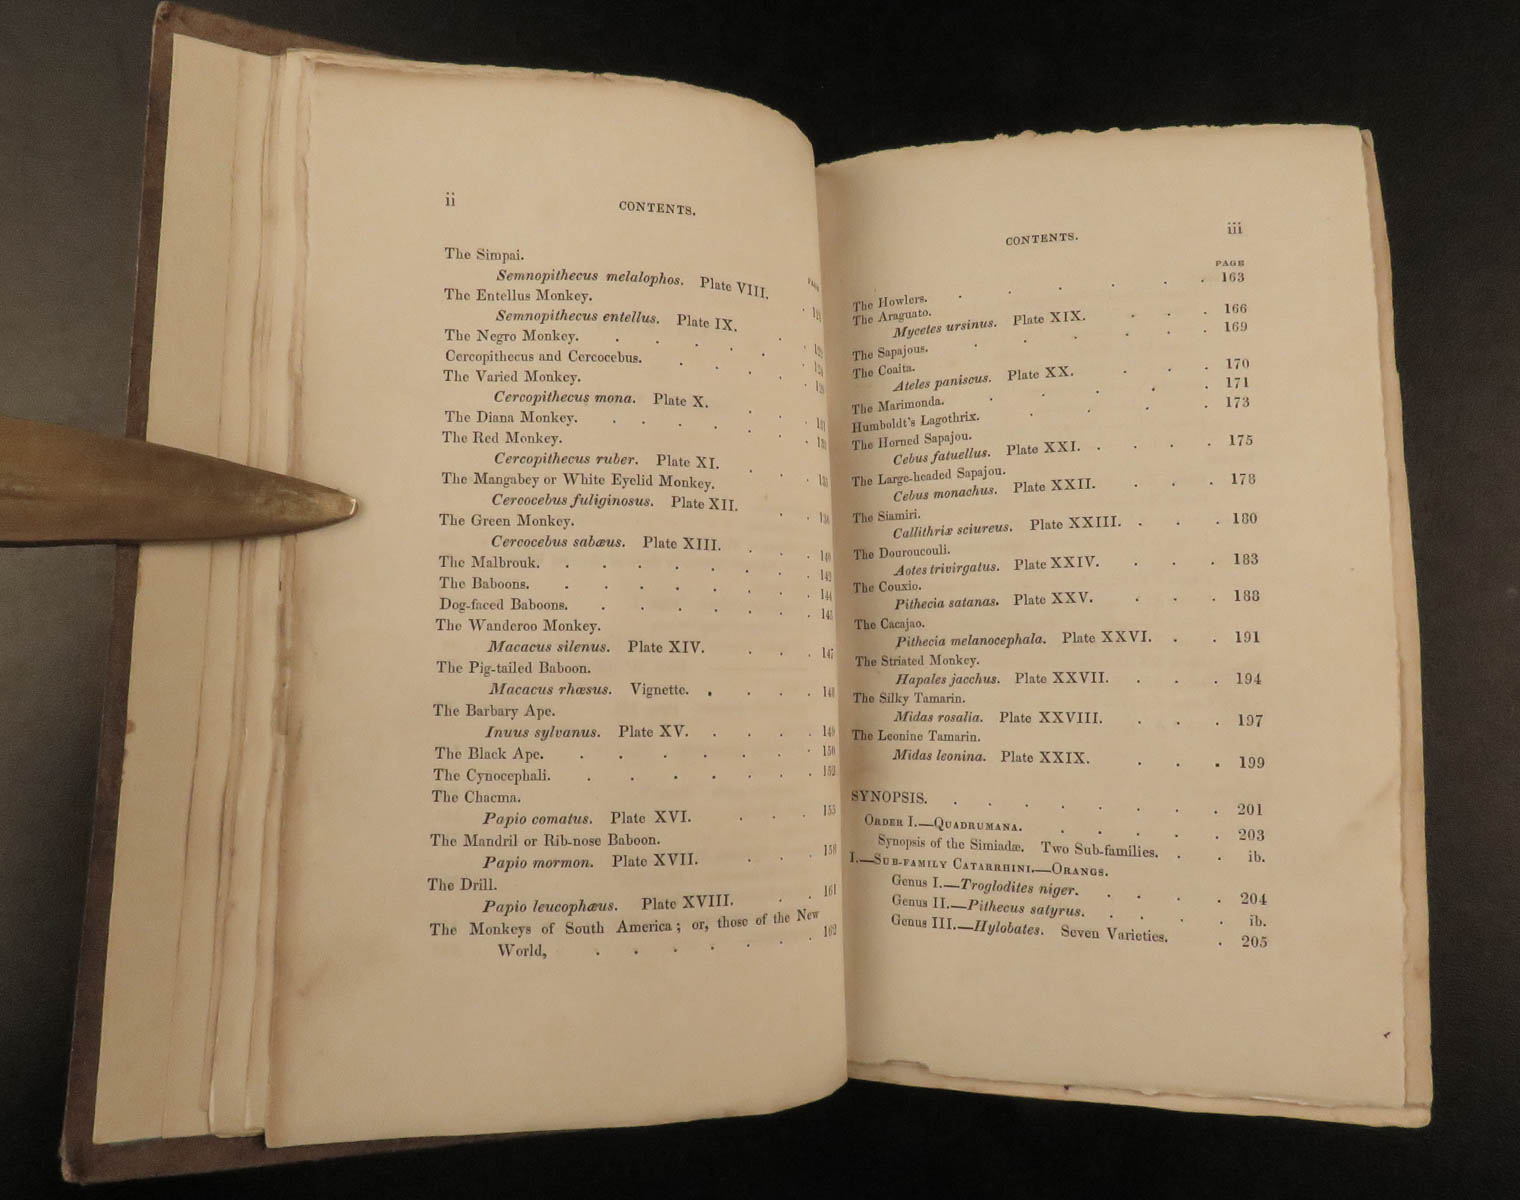 ii
CONTENTS.
The Simpai.
Semnopithecus melalophos. Plate VIII.
The Entellus Monkey.
Semnopithecus entellus. Plate IX.
The Negro Monkey.
Cercopithecus and Cercocebus.
The Varied Monkey.
Cercopithecus mona. Plate X.
The Diana Monkey.
The Red Monkey.
Cercopithecus ruber. Plate XI.
The Mangabey or White Eyelid Monkey.
Cercocebus fuliginosus. Plate XII.
The Green Monkey.
Cercocebus sabæus. Plate XIII. 140
The Malbrouk. 142
The Baboons. 144
Dog-faced Baboons. 145
The Wanderoo Monkey.
Macacus silenus. Plate XIV. 147
The Pig-tailed Baboon.
Macacus rhæsus. Vignette. 148
The Barbary Ape.
Inuus sylvanus. Plate XV. 149
The Black Ape. 150
The Cynocephali. 152
The Chacma.
Papio comatus. Plate XVI. 155
The Mandril or Rib-nose Baboon.
Papio mormon. Plate XVII. 158
The Drill.
Papio leucophæus. Plate XVIII. 161
The Monkeys of South America; or, those of the New
World, 162
CONTENTS. iii
PAGE
The Howlers. 163
The Araguato.
Mycetes ursinus. Plate XIX. 166
The Sapajous. 169
The Coaita.
Ateles paniscus. Plate XX. 170
The Marimonda. 171
Humboldt's Lagothrix. 173
The Horned Sapajou.
Cebus fatuellus. Plate XXI. 175
The Large-headed Sapajou.
Cebus monachus. Plate XXII. 178
The Siamiri.
Callithrix sciureus. Plate XXIII. 180
The Douroucouli.
Aotes trivirgatus. Plate XXIV. 183
The Couxio.
Pithecia satanas. Plate XXV. 188
The Cacajao.
Pithecia melanocephala. Plate XXVI. 191
The Striated Monkey.
Hapales jacchus. Plate XXVII. 194
The Silky Tamarin.
Midas rosalia. Plate XXVIII. 197
The Leonine Tamarin.
Midas leonina. Plate XXIX. 199
SYNOPSIS. 201
Order I.—Quadrumana. 203
Synopsis of the Simiadæ. Two Sub-families. ib.
I.—Sub-family Catarrhini.—Orangs.
Genus I.—Troglodites niger. 204
Genus II.—Pithecus satyrus. ib.
Genus III.—Hylobates. Seven Varieties. 205